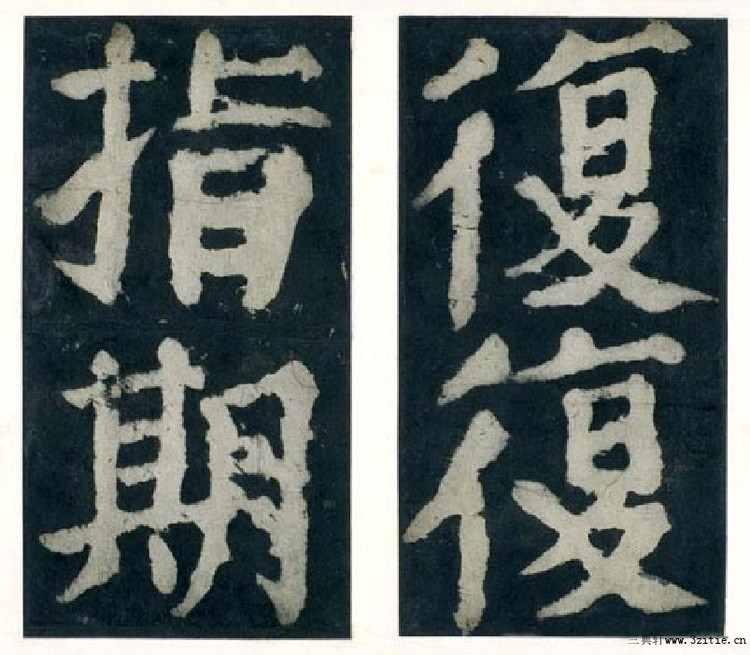 復復
指期
三典轩www.3zitie.cn